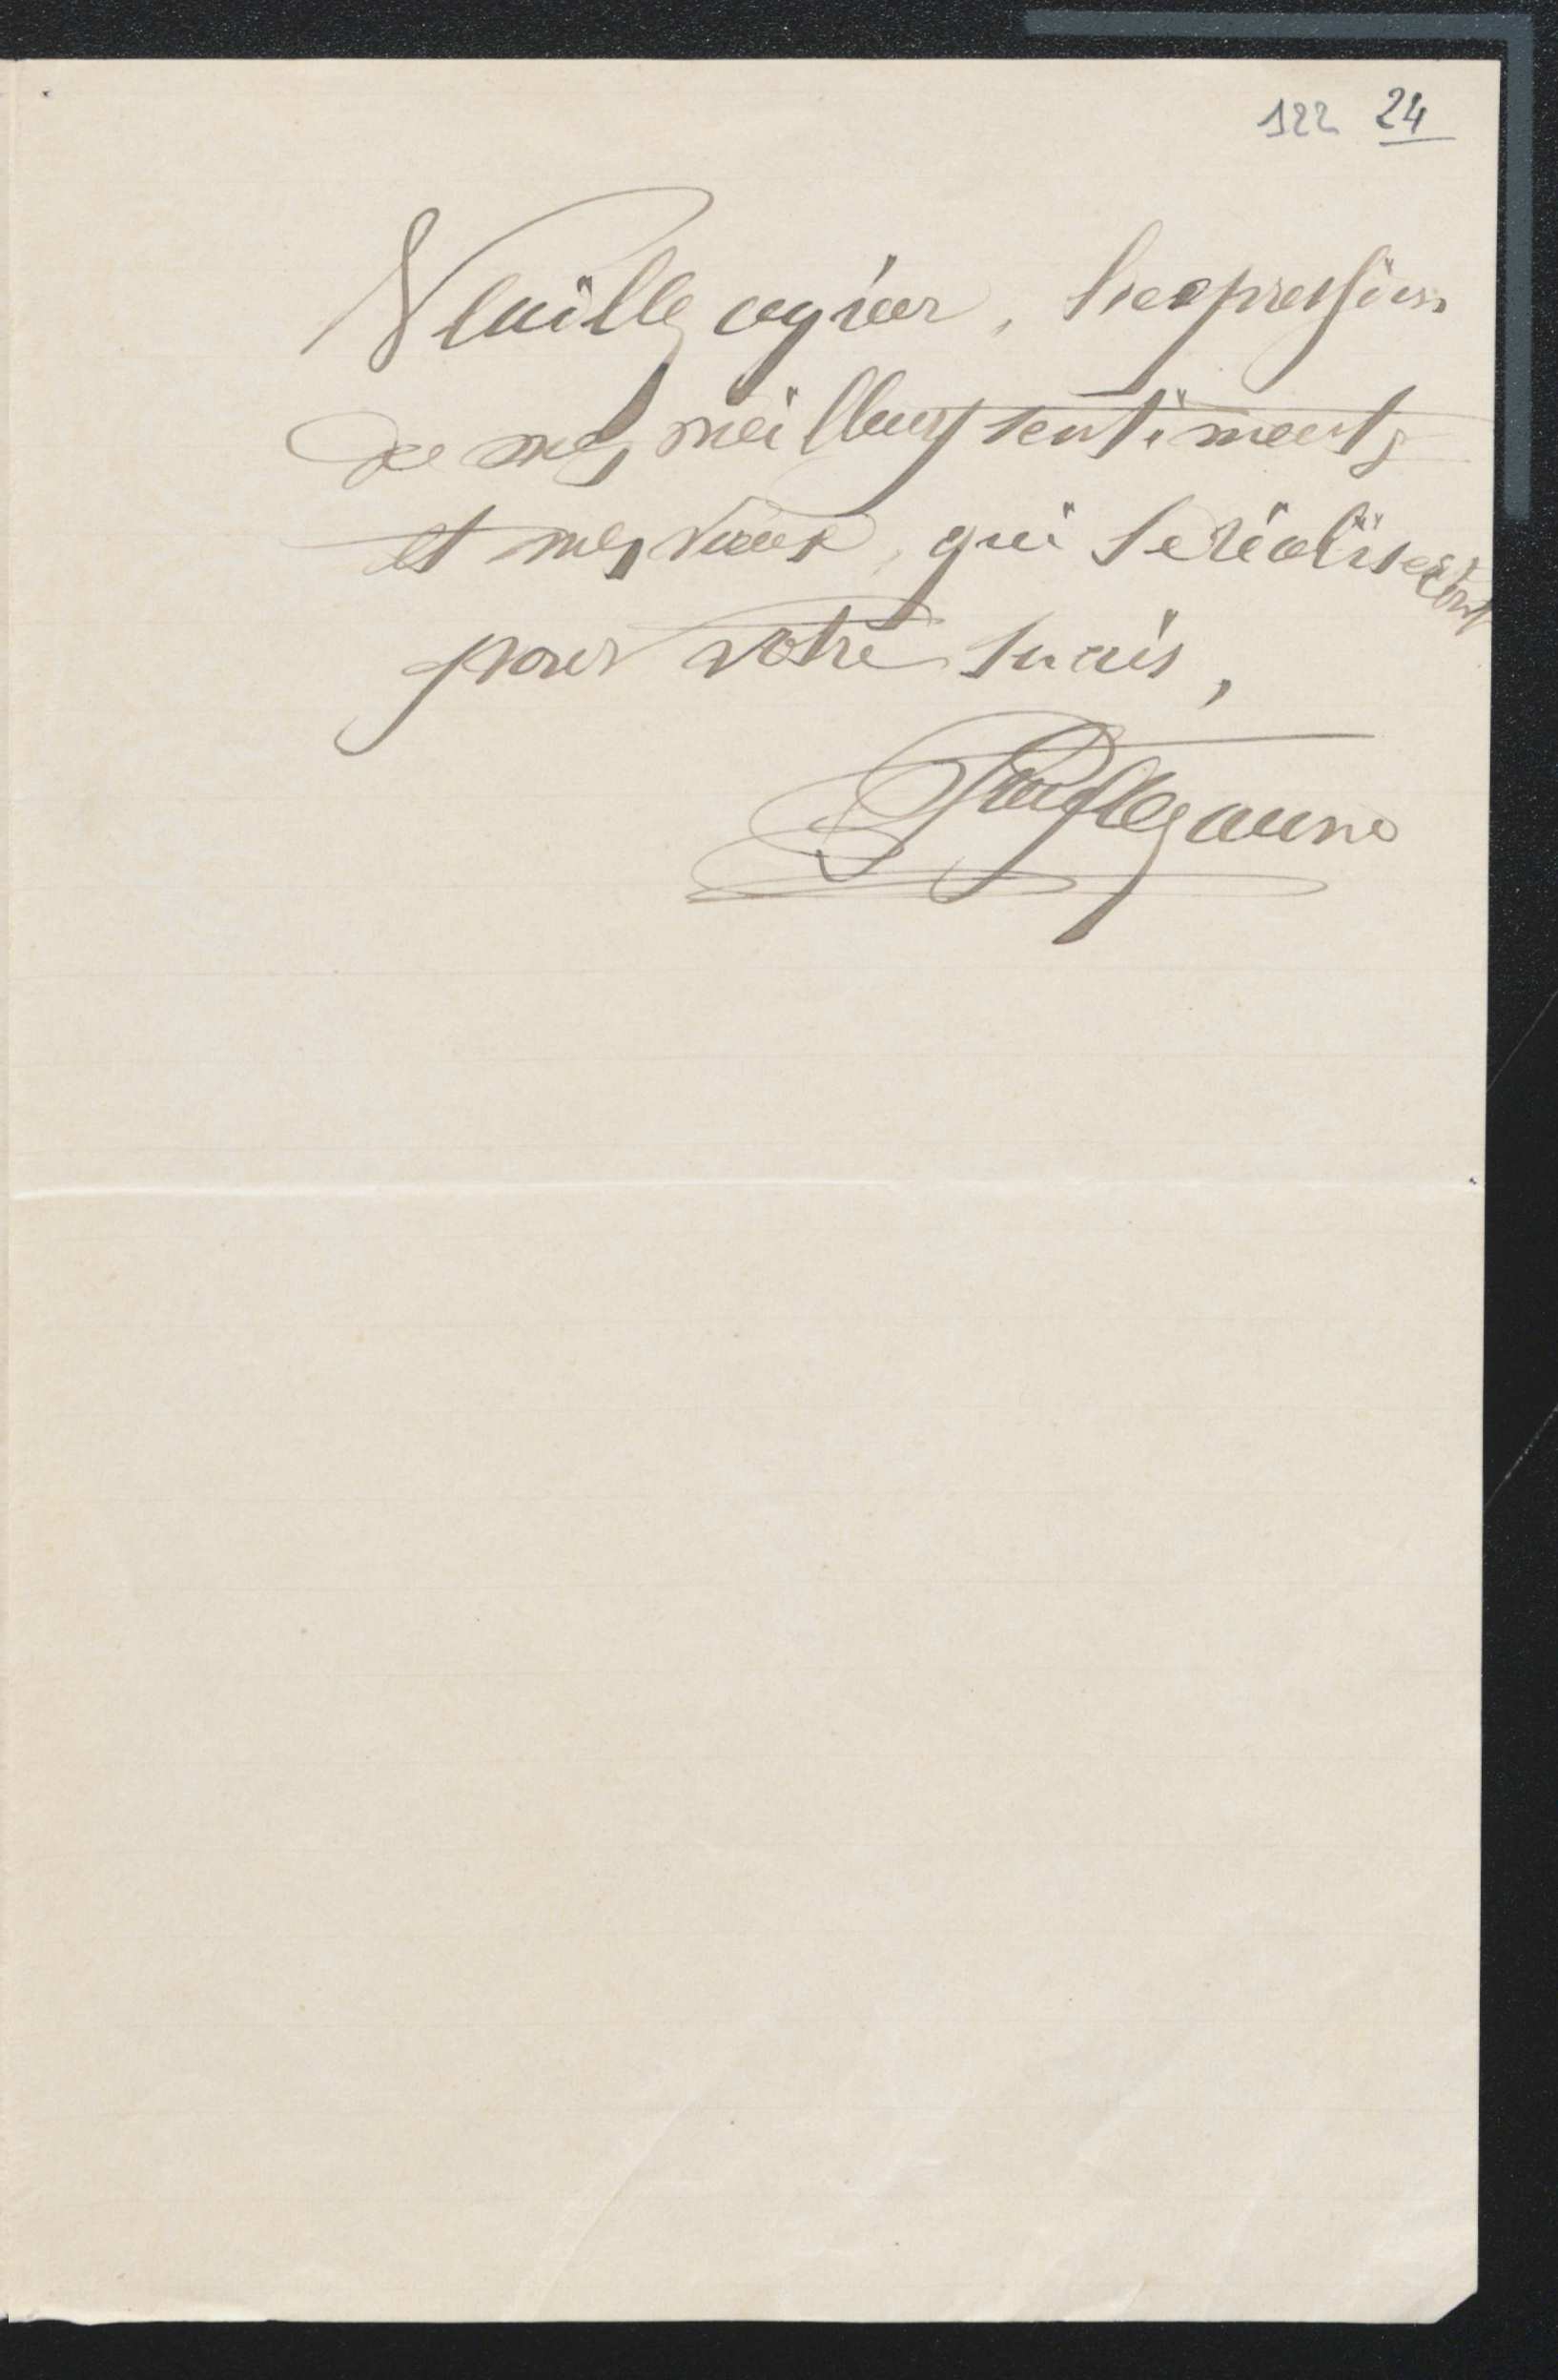 122 24
Veuillez agréer, l'expression
de mes meilleurs sentiments
et mes vœux, qui se réaliseront
pour votre succès,